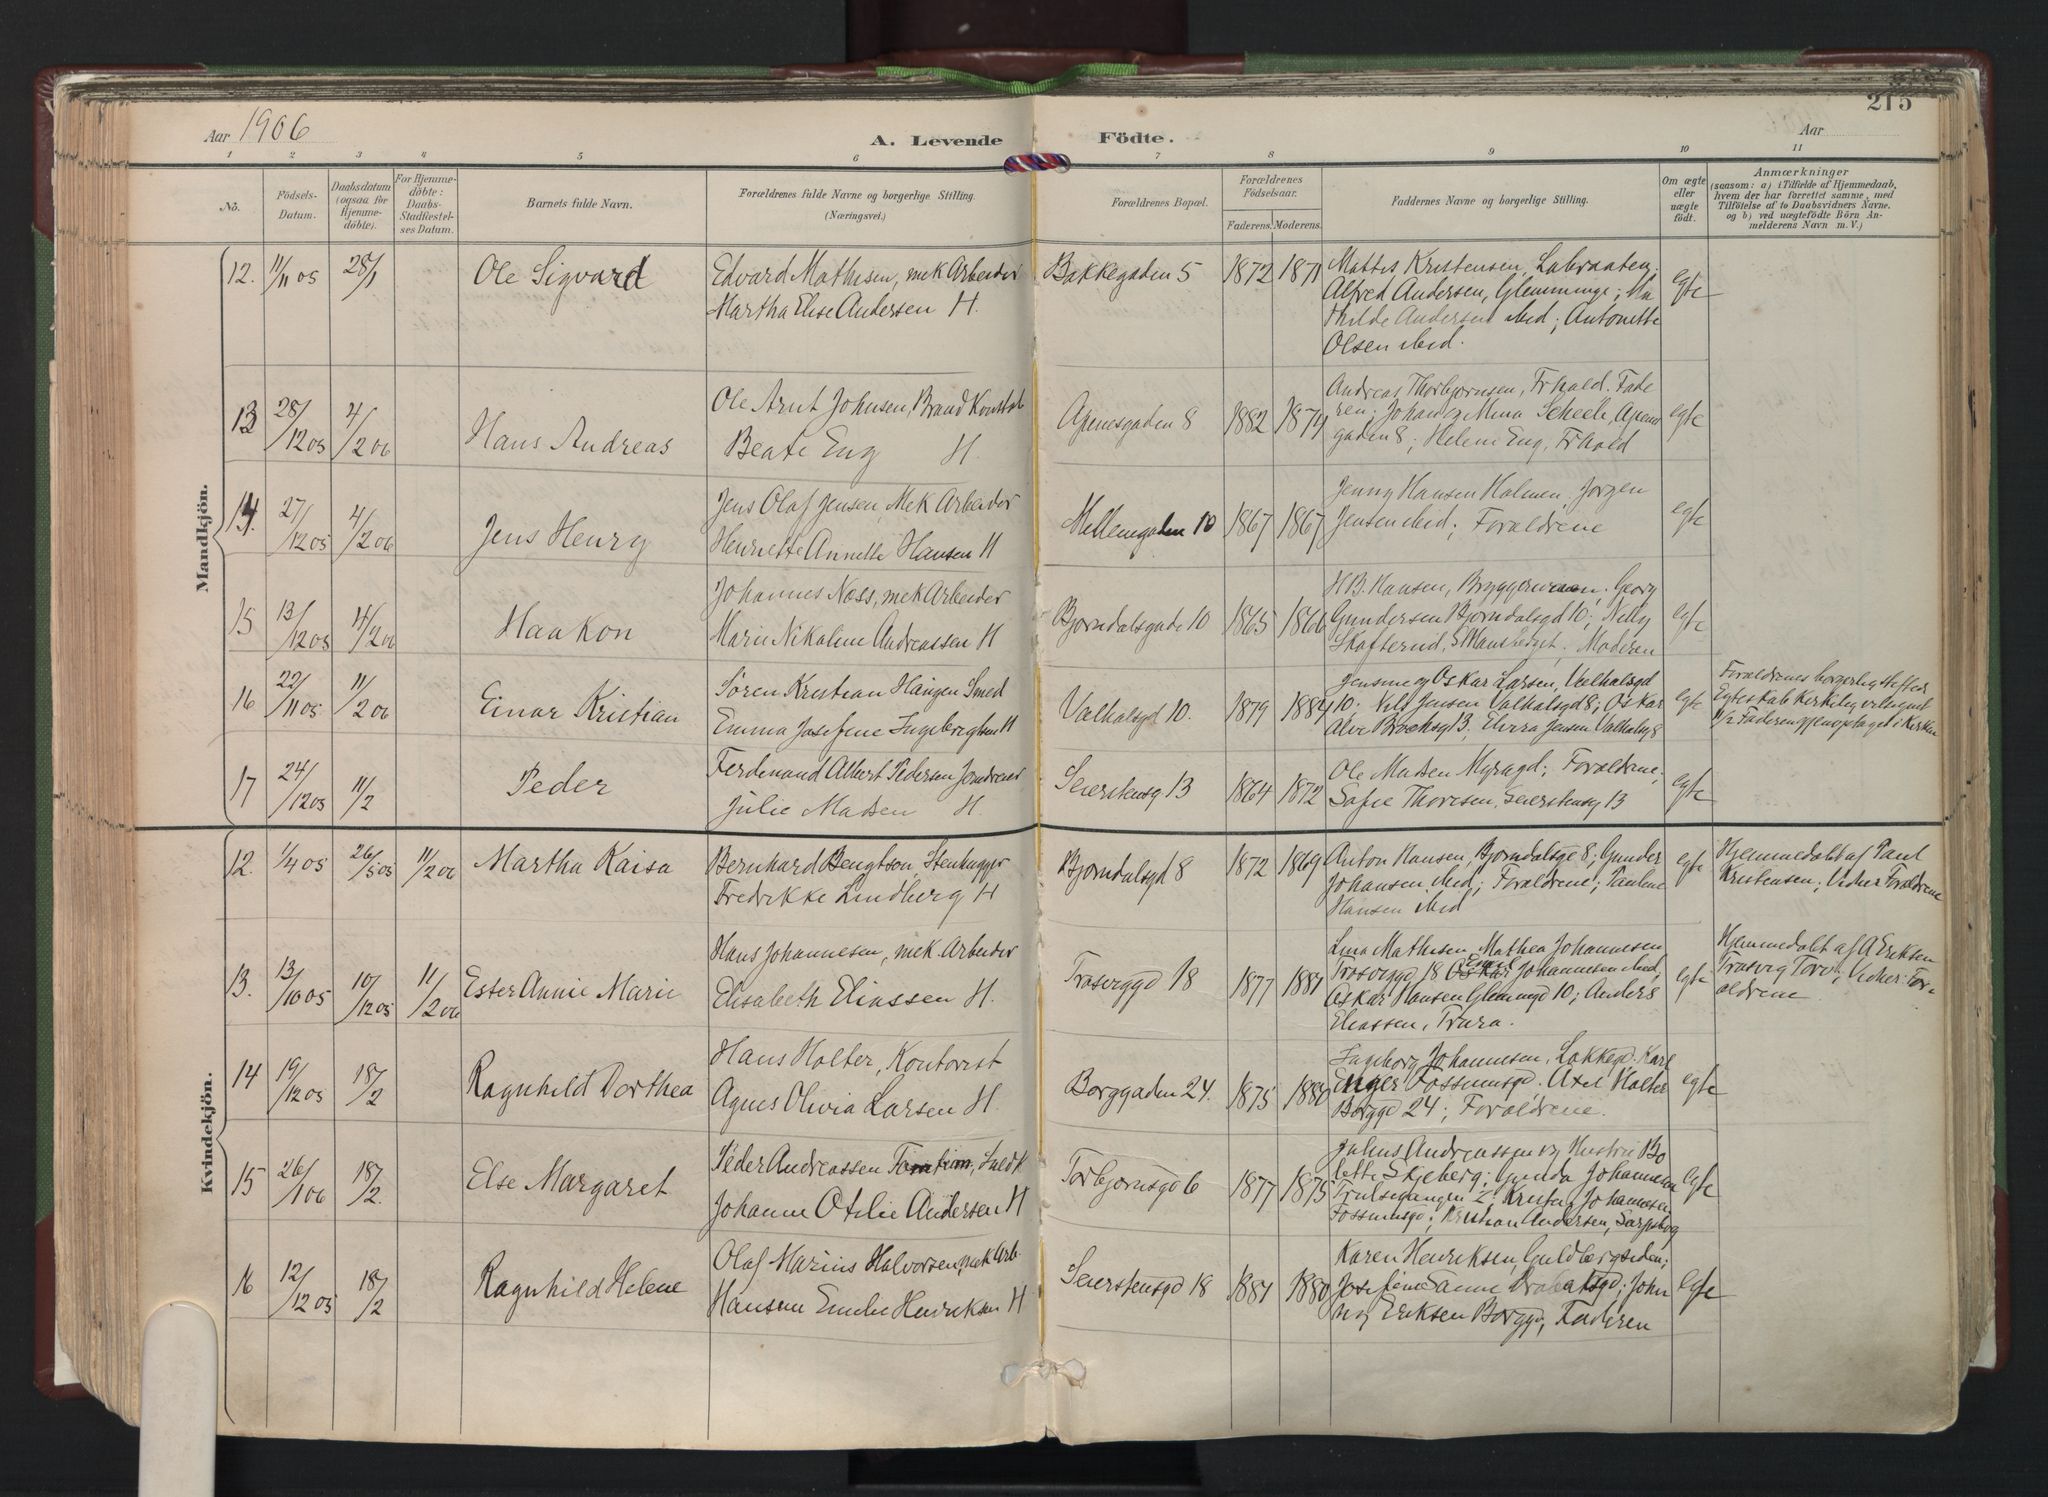 215
Aar 1906
A. Levende Födte.
Aar
1 2 3 4 5 6 7 8 9 10 11
No.
Födsels-
Datum.
Daabsdatum
(ogsaa for
Hjemme-
döbte).
For Hjemme-
döbte:
Daabs-
Stadfæstel-
ses Datum.
Barnets fulde Navn.
Forældrenes fulde Navne og borgerlige Stilling.
(Næringsvei.)
Forældrenes Bopæl.
Forældrenes
Födselsaar.
Faderens. Moderens.
Faddernes Navne og borgerlige Stilling.
Om ægte
eller
uægte
födt.
Anmærkninger
(saasom: a) i Tilfælde af Hjemmedaab,
hvem der har forrettet samme, med
Tilföielse af to Daabsvidners Navne,
og b) ved uægtefödte Börn An-
melderens Navn m. V.)
Mandkjön.
12. 11/11 05 28/1 Ole Sigvard
Edvard Mathisen, mek Arbeider
Martha Elise Andersen H.
Bakkegaden 5 1872 1871
Mattis Kristensen, Labraaten,
Alfred Andersen, Glemminge; Ma
thilde Andersen ibid; Antonette
Olsen ibid.
egte
13 28/12 05 4/2 06 Hans Andreas
Ole Arnt Johnsen, Brand Konstab
Beate Eng H.
Agenesgaden 8 1882 1874
Andreas Thorbjørnsen, Frhald. Fade
ren; Johan og Mina Scheele, Agenes
gaden 8; Helene Eng, Frhald
egte
14. 27/12 05 4/2 06 Jens Henry
Jens Olaf Jensen, Mek Arbeider
Henriette Annette Hansen H
Mellemgaden 10 1867 1867
Jenny Hansen Holmen; Jørgen
Jensen ibid; Forældrene
egte
15 13/12 05 4/2 06 Haakon
Johannes Næss, mek Arbeider
Marie Nikoline Andreassen H
Bjørndalsgade 10 1865 1866
H B. Hansen, Bryggerveien, Georg
Gundersen Bjørndalsgd 10; Nelly
Skafterud, St Hansberget; Moderen
egte
16 22/11 05 11/2 06 Einar Kristian
Søren Kristian Haugen Smed
Emma Josefine Ingebrigtsen H
Valhalsgd 10. 1879 1884
Jensine og Oskar Larsen, Valhalsgd
10. Nils Jensen Valhalsgd 8; Oskar
Alve Brochsgd 13; Elvira Jensen Valhalsg 8
egte
Forældrenes borgerlig stiftede
Egteskab kirkelig velsignet
11/2 Faderen gjenoptaget i Kirken
17 24/12 05 11/2 Peder
Ferdinand Albert Pedersen Jerndreier
Julie Madsen H.
Seierstensg 13 1864 1872
Ole Madsen Myragd; Forældrene,
Sofie Thoresen, Seierstensg 13
egte
Kvindekjön.
12. 1/4 05 26/5 05 11/2 06 Martha Kaisa
Bernhard Bengtson, Stenhugger
Fredrikke Lindberg H
Bjørndalsgd 8 1872 1869
Anton Hansen, Bjørndalsge 8; Gunder
Johansen ibid; Forældrene; Pauline
Hansen ibid
egte
Hjemmedøbt af Paul
Kristensen; Vidner Forældrene
13. 13/10 05 10/12 05 11/2 06 Ester Annie Marie
Hans Johannesen, mek Arbeider
Elisabeth Eliassen H.
Trosviggd 18 1877 1881
Lina Mathisen, Mathea Johannesen
Trosviggd, 18 Emil Johannesen ibid;
Oskar Hansen Glemmgd 10; Anders
Eliassen, Trara.
egte
Hjemmedøbt af A Eriksen
Trosvig Torv; Vidner: For-
ældrene
14 19/12 05 18/2 Ragnhild Dorthea
Hans Holter, Kontorist
Agnes Olivia Larsen H.
Borggaden 24. 1875 1880
Ingeborg Johannesen, Løkkegd. Karl
Enger Fossumsgd. Axel Holter
Borggd 24; Forældrene.
egte
15 26/1 06 18/2. Else Margaret
Peder Andreassen
Johanne Otilie Andersen H
Torbjørnsgd 6 1877 1875
Julius Andreassen og Hustru Bo
lette Skjeberg; Gunda Johannesen
Trulsegangen 2; Kristen Johannesen
Fossumsgd; Kristian Andersen, Sarpsborg
egte
16 12/12 05 18/2 Ragnhild Helene
Olaf Marius Halvorsen, mek Arb.
Hansine Emelie Henriksen H
Seierstensgd 18 1881 1880
Karen Henriksen, Guldbergsiden;
Josefine Sanne; John
og Eriksen Borggd, Faderen
egte